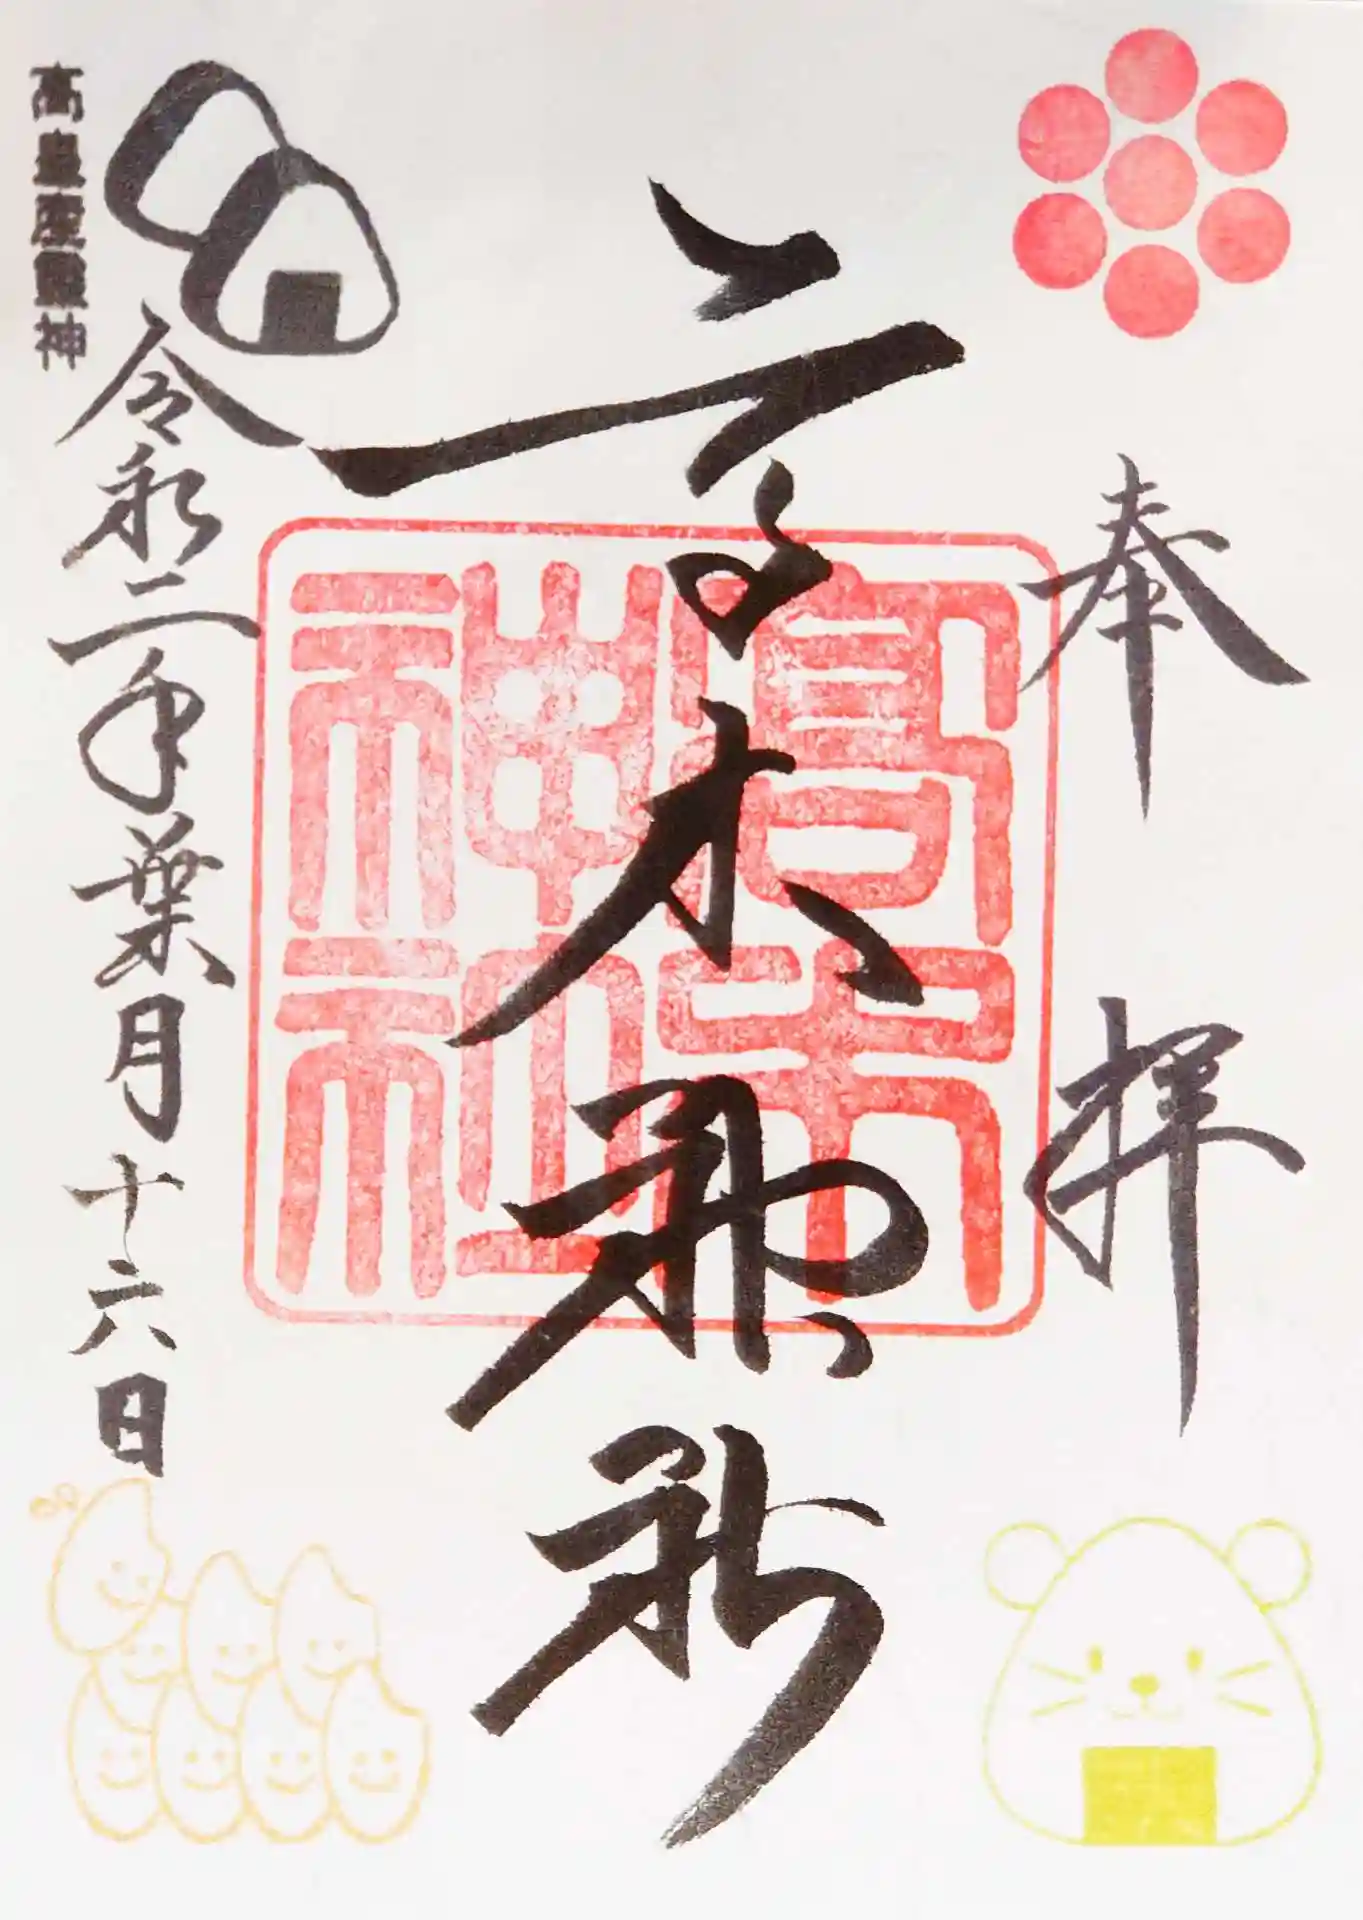 奉拝
高木神社
高木神社
令和二年葉月十六日
高皇産靈神